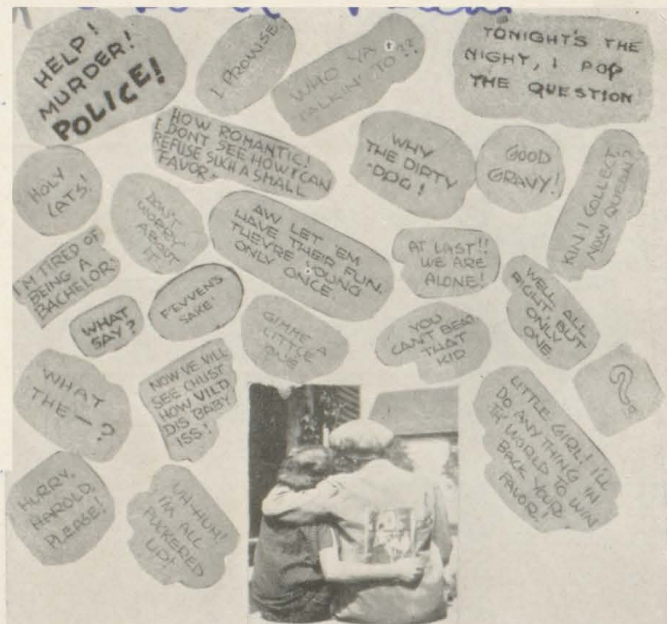 HELP!
MURDER!
POLICE!
I PROMISE!
WHO YA
TALKING TO??
TONIGHT'S THE
NIGHT, I POP
THE QUESTION
HOW ROMANTIC!
I DONT SEE HOW I CAN
REFUSE SUCH A SMALL
FAVOR.
WHY
THE DIRTY
DOG!
GOOD
GRAVY!
KIN I COLLECT
NOW QUEENY?
HOLY
CATS!
DON'T
WORRY
ABOUT
IT
AW LET 'EM
HAVE THEIR FUN.
THEYRE YOUNG
ONLY ONCE
AT LAST!!
WE ARE
ALONE!
I'M TIRED OF
BEING A
BACHELOR
WHAT
SAY?
FEVVENS
SAKE
GIMME A
LITTLE
ONE
YOU
CAN'T BEAT
THAT
KID
WELL ALL
RIGHT, BUT
ONLY
ONE
WHAT
THE —?
NOW VE VILL
SEE CHUST
HOW VILD
DIS BABY
ISS!
?
LITTLE GIRL! I'LL
DO ANYTHING IN
TH' WORLD TO WIN
BACK YOUR
FAVOR!
HURRY,
HAROLD,
PLEASE!
UH-HUH!
I'M ALL
PUCKERED
UP!